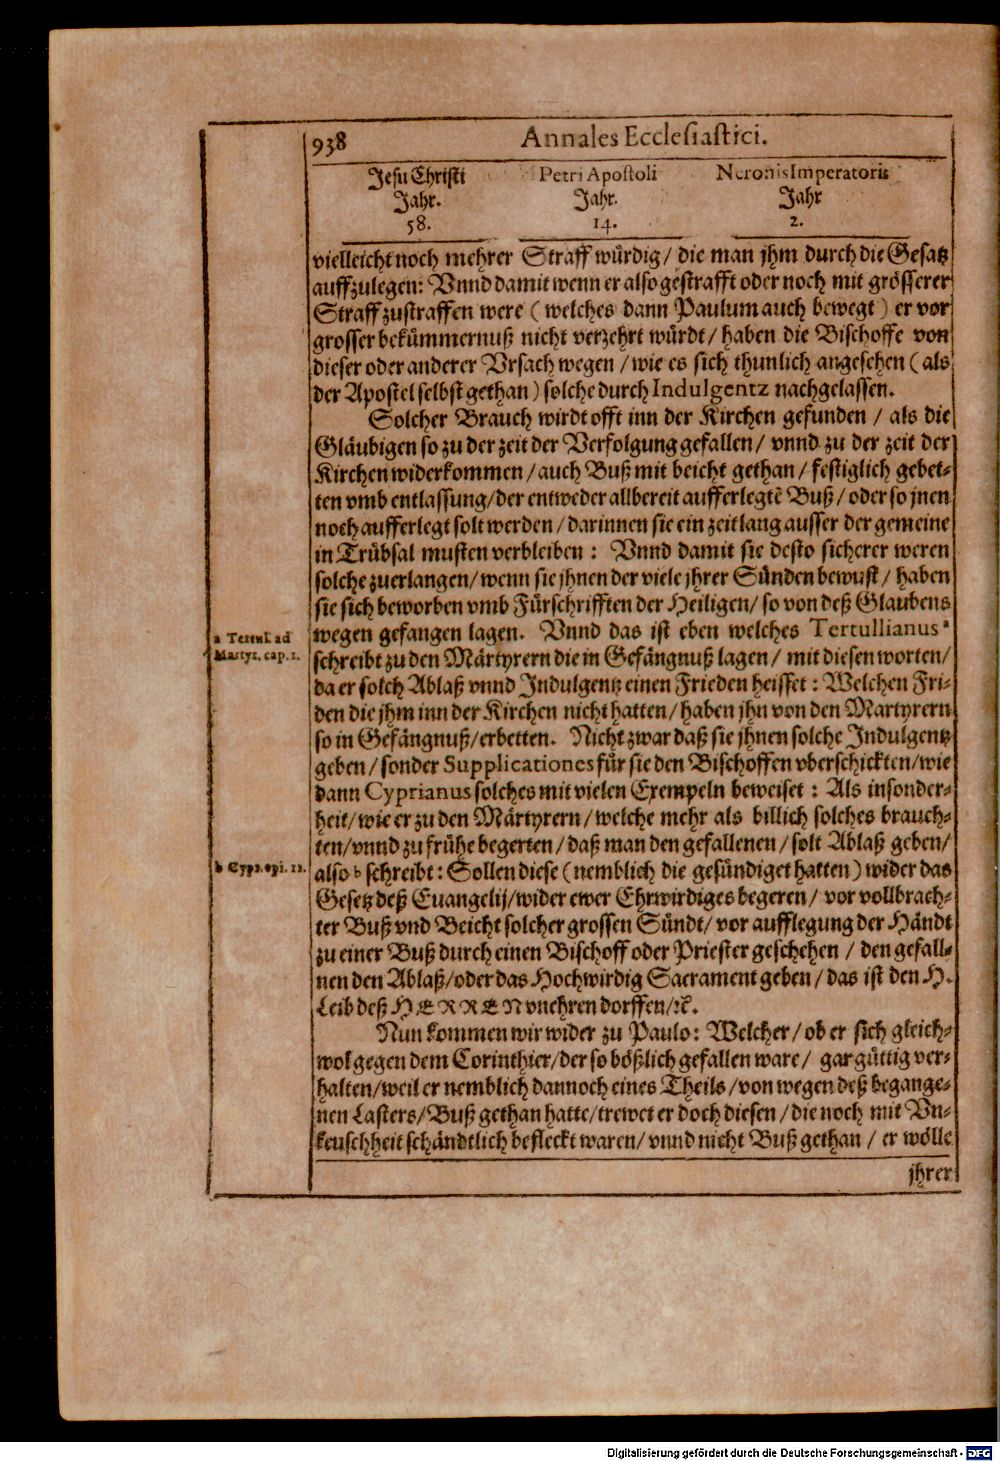 938 Annales Ecclesiastici.
Jesu Christi Petri Apostoli Neronis Imperatoris
Jahr. Jahr. Jahr
58. 14. 2.
vielleicht noch mehrer Straff würdig / die man jhm durch die Gesatz
auffzulegen: Vnnd damit wenn er also gestrafft oder noch mit grösserer
Straff zustraffen were ( welches dann Paulum auch bewegt ) er vor
grosser bekümmernuß nicht verzehrt würdt / haben die Bischoffe von
dieser oder anderer Vrsach wegen / wie es sich thunlich angesehen ( als
der Apostel selbst gethan ) solche durch Indulgentz nachgelassen.
Solcher Brauch wirdt offt inn der Kirchen gefunden / als die
Gläubigen so zu der zeit der Verfolgung gefallen / vnnd zu der zeit der
Kirchen widerkommen / auch Buß mit beicht gethan / festiglich gebet-
ten vmb entlassung / der entweder allbereit aufferlegtē Buß / oder so jnen
noch aufferlegt solt werden / darinnen sie ein zeit lang ausser der gemeine
in Trübsal musten verbleiben : Vnnd damit sie desto sicherer weren
solche zuerlangen / wenn sie jhnen der viele jhrer Sünden bewust / haben
sie sich beworben vmb Fürschrifften der Heiligen / so von deß Glaubens
wegen gefangen lagen. Vnnd das ist eben welches Tertullianus ᵃ
a Tertul. ad
Martyr. cap. 1.
schreibt zu den Märtyrern die in Gefängnuß lagen / mit diesen worten /
da er solch Ablaß vnnd Indulgentz einen Frieden heisset : Welchen Fri-
den die jhm inn der Kirchen nicht hatten / haben jhn von den Martyrern
so in Gefängnuß / erbetten. Nicht zwar daß sie jhnen solche Indulgentz
geben / sonder Supplicationes für sie den Bischoffen vberschickten / wie
dann Cyprianus solches mit vielen Exempeln beweiset : Als insonder-
heit / wie er zu den Märtyrern / welche mehr als billich solches brauch-
ten / vnnd zu frühe begerten / daß man den gefallenen / solt Ablaß geben /
b Cypr. epi. 11.
also ᵇ schreibt : Sollen diese ( nemblich die gesündiget hatten ) wider das
Gesetz deß Euangelij / wider ewer Ehrwirdiges begeren / vor vollbrach-
ter Buß vnd Beicht solcher grossen Sündt / vor aufflegung der Händt
zu einer Buß durch einen Bischoff oder Priester geschehen / den gefall-
nen den Ablaß / oder das Hochwirdig Sacrament geben / das ist den H.
Leib deß HERREN vnehren dorffen / ꝛc.
Nun kommen wir wider zu Paulo : Welcher / ob er sich gleich-
wol gegen dem Corinthier / der so bößlich gefallen ware / gar güttig ver-
halten / weil er nemblich dannoch eines Theils / von wegen deß begange-
nen Lasters / Buß gethan hatte / trewet er doch diesen / die noch mit Vn-
keuschheit schändtlich befleckt waren / vnnd nicht Buß gethan / er wölle
jhrer
Digitalisierung gefördert durch die Deutsche Forschungsgemeinschaft - DFG